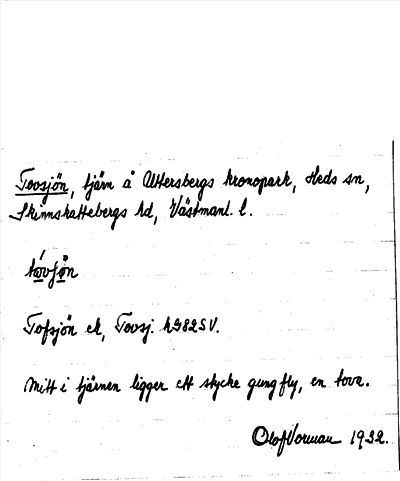 Tovsjön, tjärn å Uttersbergs kronopark, Heds sn,
Skinnskattebergs hd, Västmanl. l.
tóvʃön
Tofsjön ek, Tovsj. h982SV.
Mitt i tjärnen ligger ett stycke gungfly, en tova.
Olof Vorman 1932.